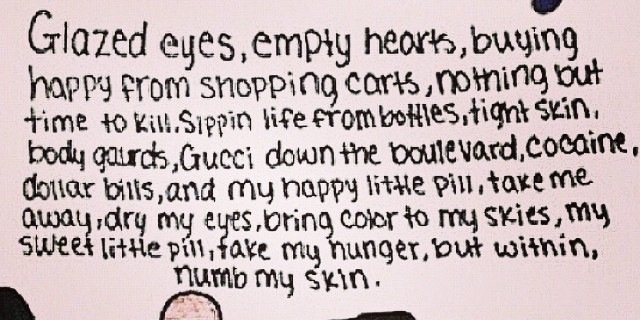 Glazed eyes, empty hearts, buying
happy from shopping carts, nothing but
time to kill. Sippin life from bottles, tight skin,
body gaurds, Gucci down the boulevard, cocaine,
dollar bills, and my happy little pill, take me
away, dry my eyes, bring color to my skies, my
sweet little pill, take my hunger, but within,
numb my skin.